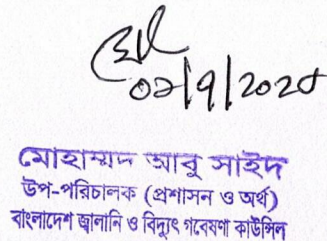 মোহাম্মদ আবু সাইদ
উপ-পরিচালক (প্রশাসন ও অর্থ)
বাংলাদেশ জ্বালানি ও বিদ্যুৎ গবেষণা কাউন্সিল